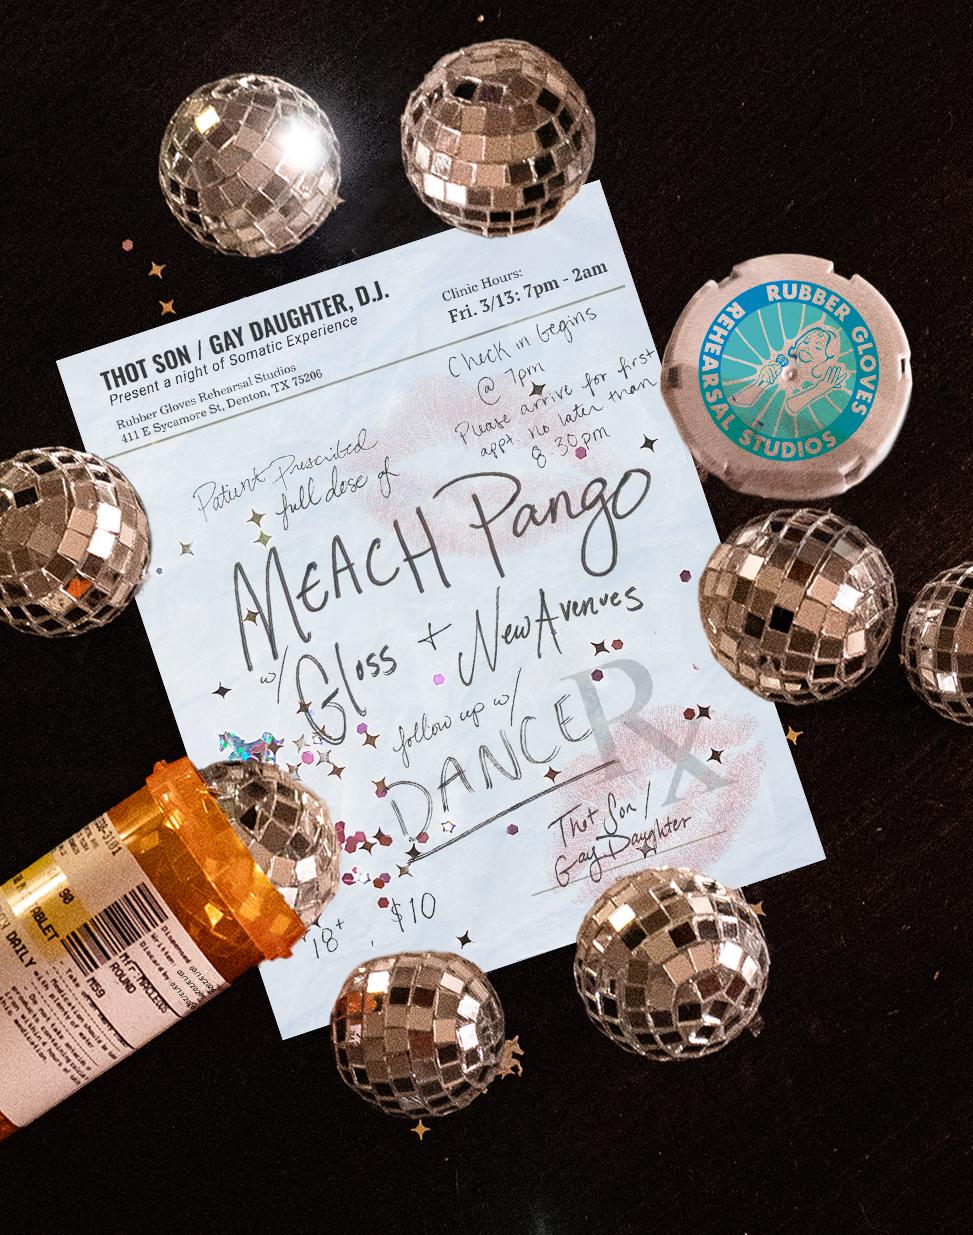 THOT SON / GAY DAUGHTER, D.J.
Present a night of Somatic Experience
Rubber Gloves Rehearsal Studios
411 E Sycamore St, Denton, TX 75206
Clinic Hours:
Fri. 3/13: 7pm - 2am
Check in begins
@ 7pm
Please arrive for first
appt no later than
8:30pm
Patient Prescribed
full dose of
MEACH Pango
w/ Gloss + New Avenues
follow up w/
DANCE
Rx
Thot Son /
Gay Daughter
18+, $10
RUBBER GLOVES
REHEARSAL STUDIOS
90
TABLET
DAILY
M59
ROUND